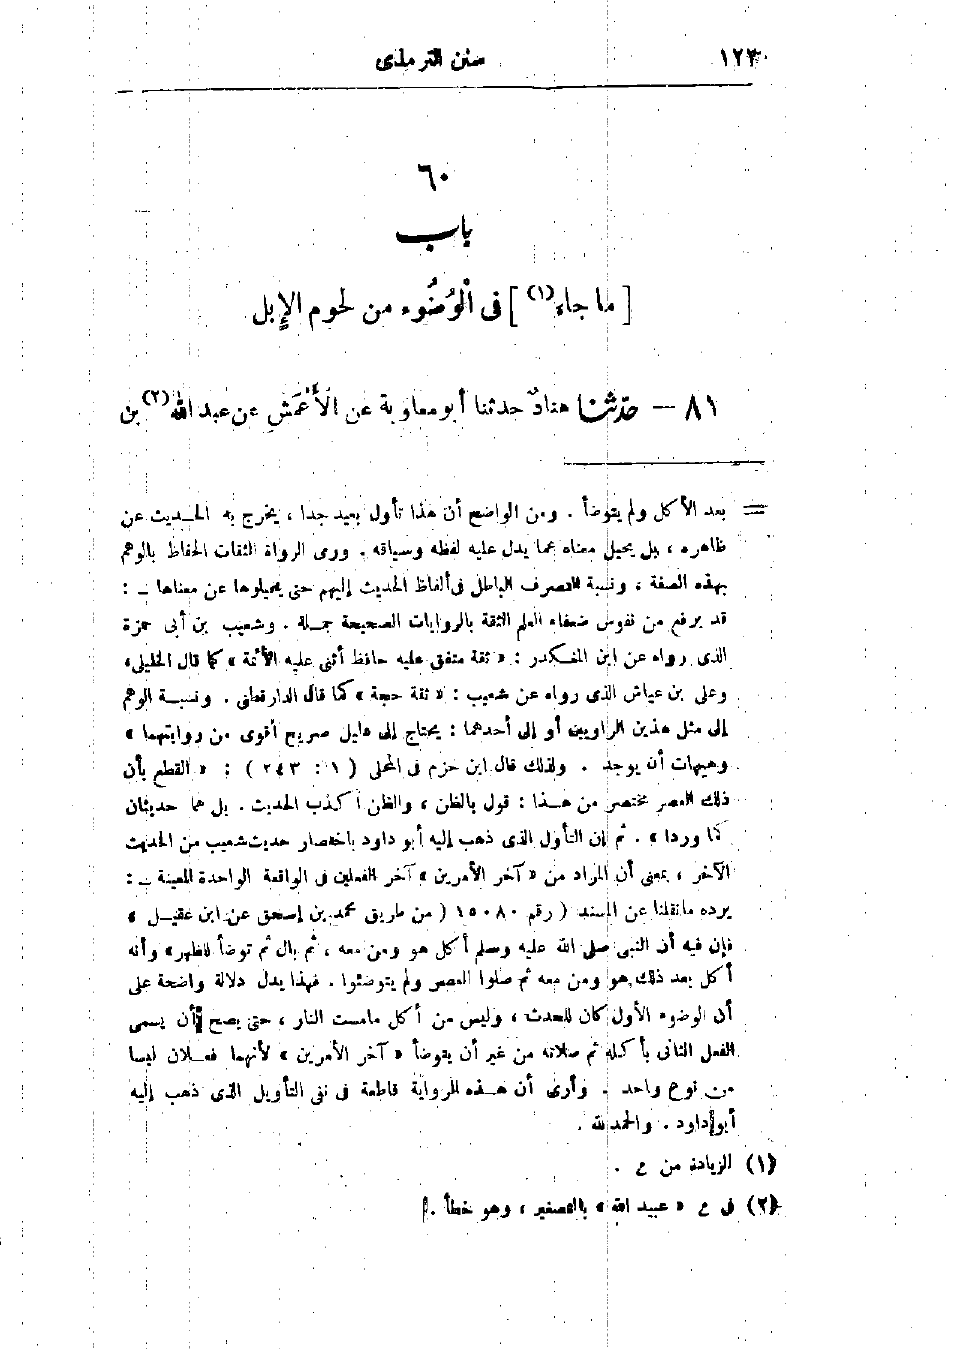 ١٢٣٠ سنن الترمذى
٦٠
باب
[ ما جاء (١) ] فى الْوُضُوء من لحوم الإبل
٨١ — حدّثنا هنادٌ حدثنا أبو معاوية عن الأَعْمَشِ عن عبد الله (٢) بن
= بعد الأكل ولم يتوضأ . ومن الواضح أن هذا تأول بعيد جدا ، يخرج به الحـديث عن
ظاهره ، بل يحيل معناه عما يدل عليه لفظه وسياقه . ورى الرواة الثقات الحفاظ بالوهم
بهذه الصفة ، ونسبة التصرف الباطل فى ألفاظ الحديث إليهم حتى يحيلوها عن معناها ـ :
قد يرفع من نفوس ضعفاء العلم الثقة بالروايات الصحيحة جمـلة . وشعيب بن أبى حمزة
الذى رواه عن ابن المنـكدر : « ثقة متفق عليه حافظ أثنى عليه الأئمة » كما قال الخليلى ،
وعلى بن عياش الذى رواه عن شعيب : « ثقة حجة » كما قال الدارقطنى . ونسبـة الوهم
إلى مثل هذين الراويين أو إلى أحدهما : يحتاج إلى دليل صريح أقوى من روايتهما »
وهيهات أن يوجد . ولذلك قال ابن حزم فى المحلى ( ١ : ٢٤٣ ) : « القطع بأن
ذلك المصر مختصر من هـذا : قول بالظن ، والظن أكذب الحديث . بل هما حديثان
كما وردا » . ثم إن التأول الذى ذهب إليه أبو داود باختصار حديث شعيب من الحديث
الآخر ، بمعنى أن المراد من « آخر الأمرين » آخر الفعلين فى الواقعة الواحدة المعينة ـ :
يرده ما نقلنا عن المسند ( رقم ١٥٠٨٠ ( من طريق محمد بن إسحق عن ابن عقيـل »
فإن فيه أن النبى صلى الله عليه وسلم أكل هو ومن معه ، ثم بال ثم توضأ للظهر » وأنه
أكل بعد ذلك هو ومن معه ثم صلوا العصر ولم يتوضئوا . فهذا يدل دلالة واضحة على
أن الوضوء الأول كان للحدث ، وليس من أكل مامست النار ، حتى يصح أن يسمى
الفعل الثانى بأكله ثم صلاته من غير أن يتوضأ « آخر الأمرين » لأنهما فعـلان ليسا
من نوع واحد . وأرى أن هـذه الرواية قاطعة فى نفى التأويل الذى ذهب إليه
أبو داود . والحمد لله .
(١) الزيادة من ع .
(٢) فى ع « عبيد الله » بالتصغير ، وهو خطأ .